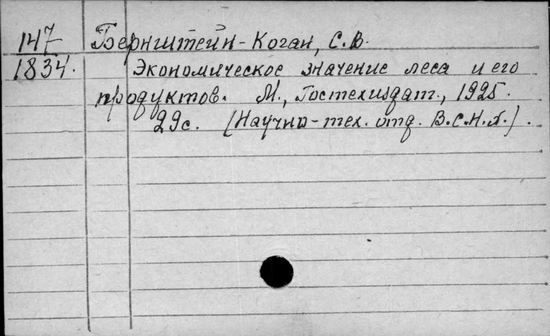 147 Бернштейн-Коган, С.В.
1834. Экономическое значение леса и его
продуктов. М., Гостехиздат., 1925.
29с. (Научно-тех. отд. В.С.Н.Х.).